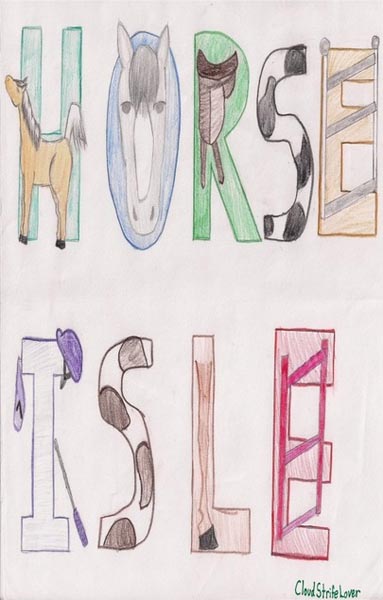 HORSE
ISLE
CloudStrifeLover